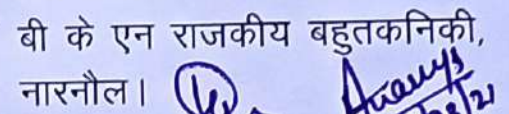 बी के एन राजकीय बहुतकनिकी,
नारनौल।